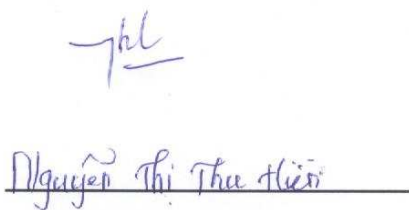 Nguyễn Thị Thu Hiền